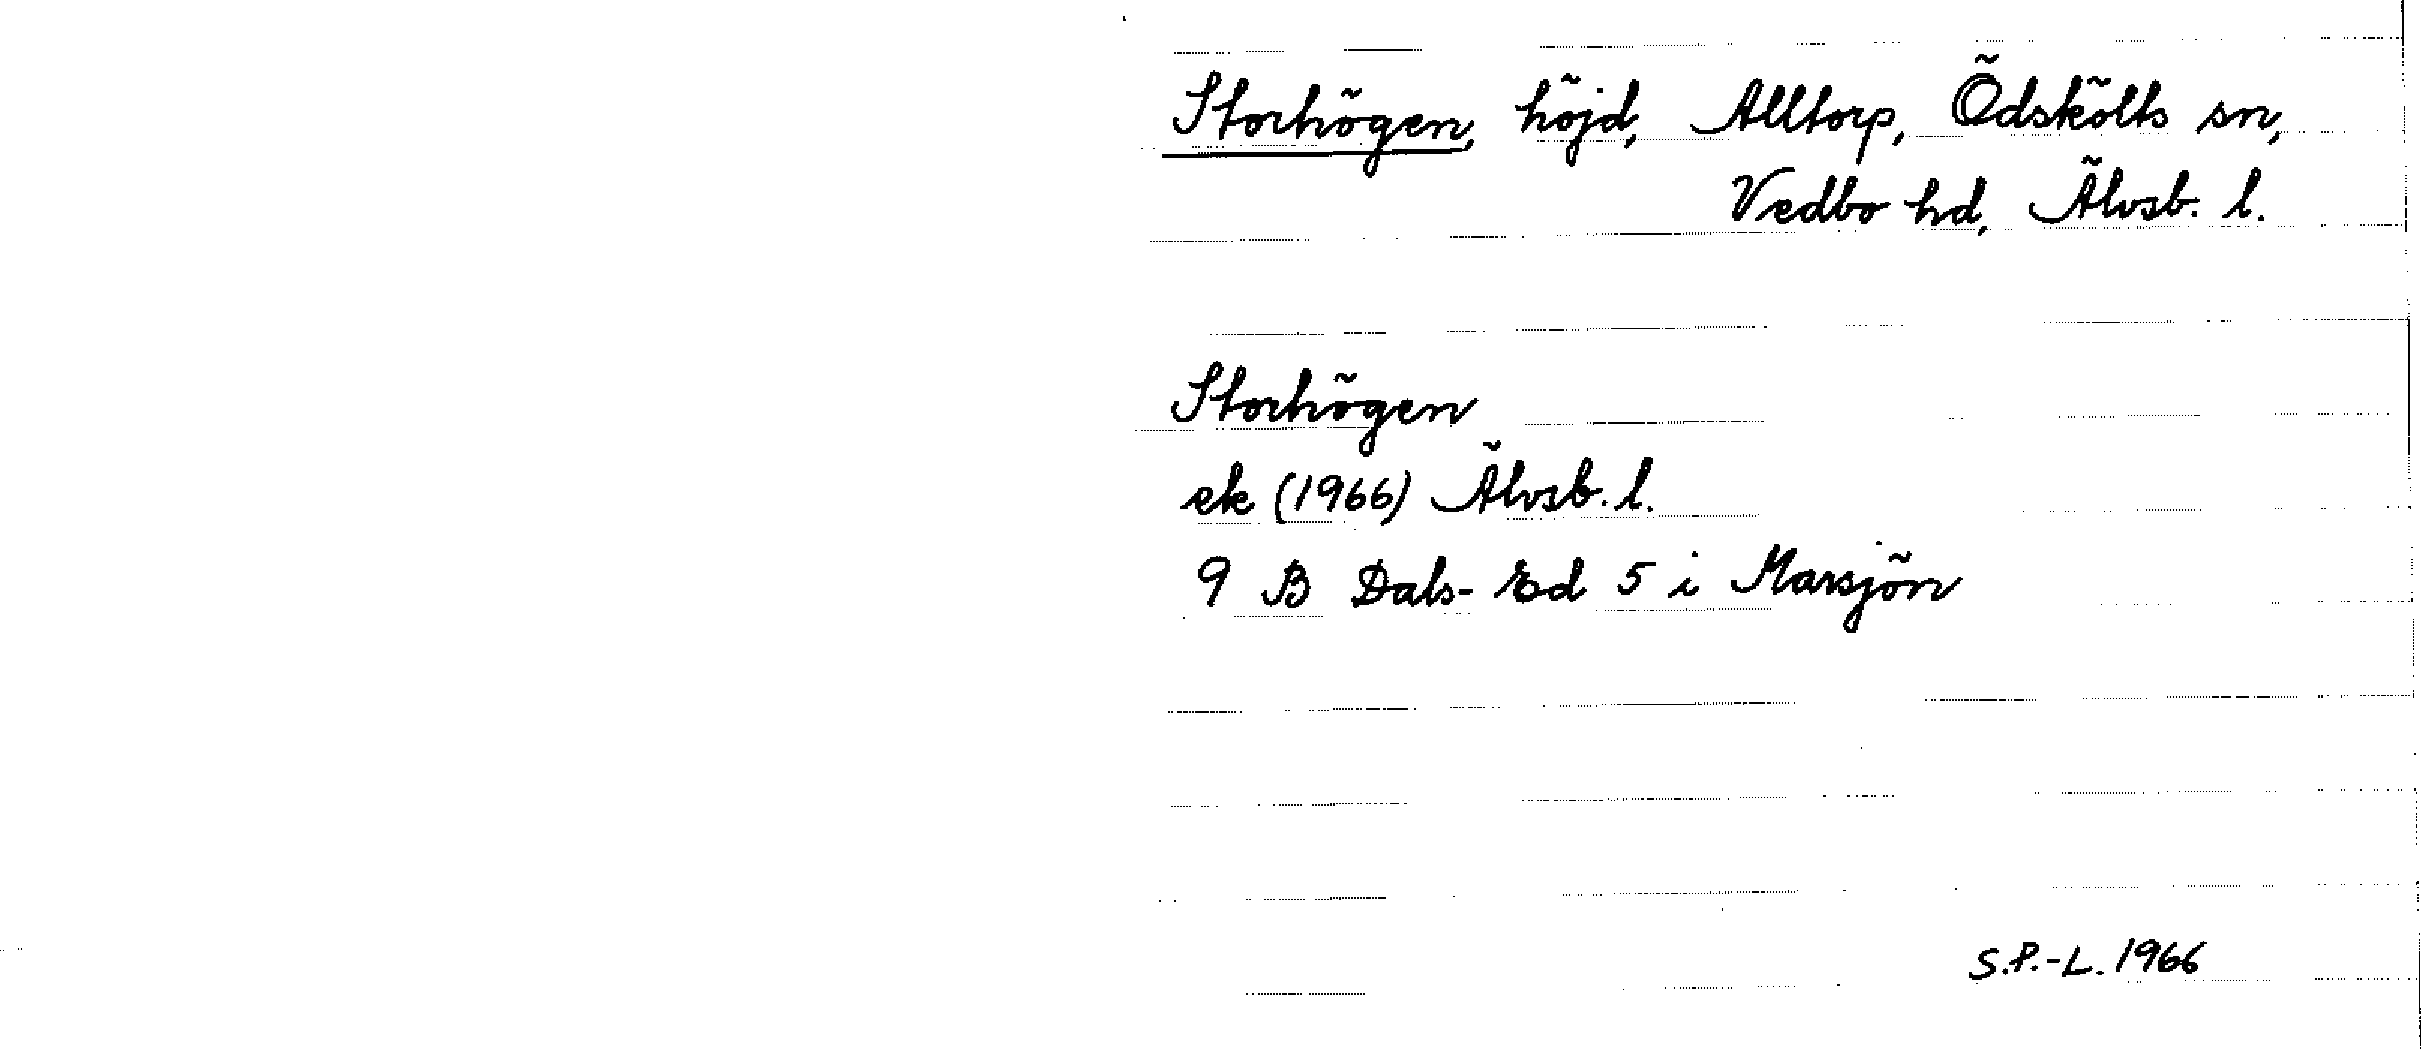 Storhögen, höjd, Alltorp, Ödskölts sn,
Vedbo hd, Älvsb. l.
Storhögen
ek (1966) Älvsb. l.
9 B Dals-Ed 5 i Marsjön
S.P.-L. 1966